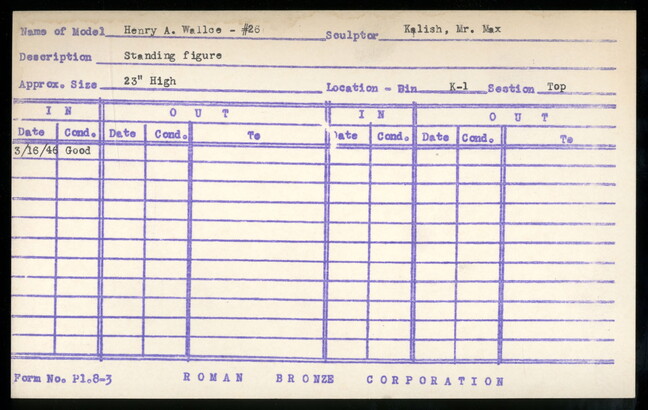 Name of Model Henry A. Wallce - #26 Sculptor Kalish, Mr. Max
Description Standing figure
Approx. Size 23" High Location - Bin K-1 Section Top
I N O U T I N O U T
Date Cond. Date Cond. To Date Cond. Date Cond. To
3/16/46 Good
Form No. P1.8-3 ROMAN BRONZE CORPORATION